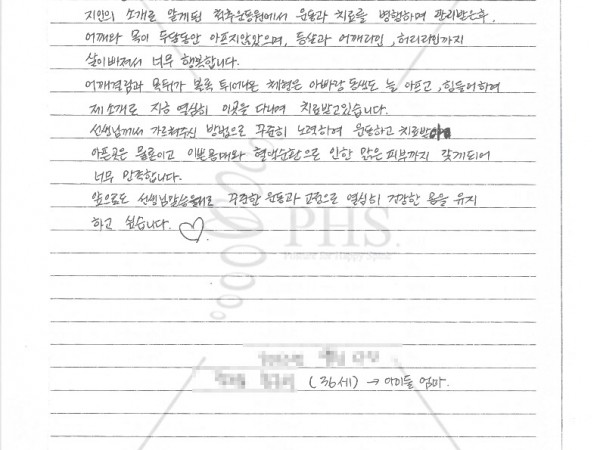 지인의 소개로 알게된 척추운동원에서 운동과 치료를 병행하며 관리받은후,
어깨와 목이 두달동안 아프지않았으며, 등살과 어깨라인, 허리라인까지
살이빠져서 너무 행복합니다.
어깨결림과 목뒤가 볼록 튀어나온 체형은 아빠랑 동생도 늘 아프고, 힘들어하며
제 소개로 지금 열심히 이곳을 다니며 치료받고있습니다.
선생님께서 가르쳐주신 방법으로 꾸준히 노력하여 운동하고 치료받아
아픈곳은 물론이고 이쁜몸매와 혈액순환으로 인한 맑은피부까지 갖게되어
너무 만족합니다.
앞으로도 선생님말씀대로 꾸준한 운동과 교정으로 열심히 건강한 몸을 유지
하고 싶습니다. ♡
PHS.
(36세) → 아이둘 엄마.